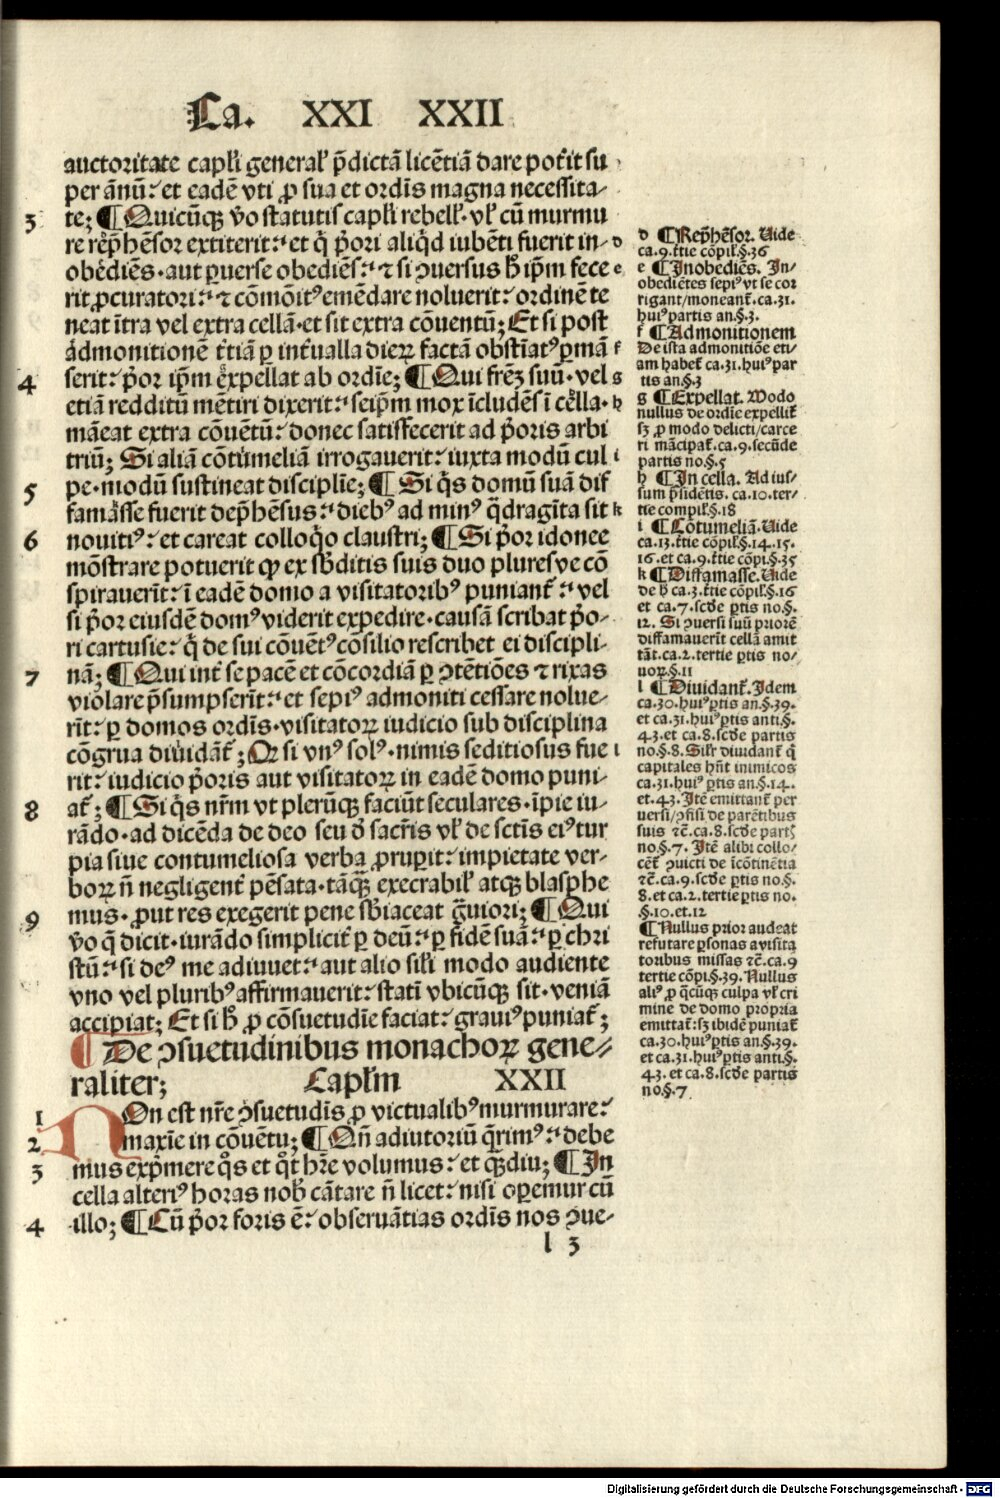 Ca. XXI XXII
auctoritate capłi generał p̄dictā licētiā dare pot̄it su
per ānū: et eadē vti ꝓ sua et ordīs magna necessita-
3 te; ¶ Quicūqꝫ v̄o statutis capłi rebelł· vł cū murmu
re rep̄hēsor extiterit: et q̄ p̄ori aliq̄d iubēti fuerit in- d
obediēs· aut ꝑuerse obediēs: ⁊ si ꝯuersus h̄ ip̄m fece e
rit ꝓcuratori: ⁊ cōmōitꝰ emēdare noluerit: ordinē te
neat ītra vel extra cellā· et sit extra cōuentū; Et si post
admonitionē t̄tiā ꝑ int̄ualla dieꝝ factā obstīatꝰ ꝑmā f
4 serit: p̄or ip̄m expellat ab ordīe; ¶ Qui frēꝫ suū· vel g
etiā redditū mētiri dixerit: seip̄m mox īcludēs ī cella· h
māeat extra cōuētū: donec satiffecerit ad p̄oris arbi
triū; Si aliā cōtumeliā irrogauerit: iuxta modū cul i
5 pe· modū sustineat disciplīe; ¶ Si q̄s domū suā dif
famasse fuerit dep̄hēsus: diebꝰ ad minꝰ q̄dragīta sit k
6 nouitiꝰ: et careat colloq̄o claustri; ¶ Si p̄or idonee
mōstrare potuerit qꝫ ex sb̄ditis suis duo pluresve cō
spirauerīt: ī eadē domo a visitatoribꝰ puniant̄: vel
si p̄or eiusdē domꝰ viderit expedire· causā scribat p̄o-
ri cartusie: q̄ de sui cōuētꝰ cōsilio rescribet ei discipli-
7 nā; ¶ Qui int̄ se pacē et cōcordiā ꝑ ꝯtētiōes ⁊ rixas
violare p̄sumpserīt: et sepiꝰ admoniti cessare nolue-
rīt: ꝑ domos ordīs· visitatoꝝ iudicio sub disciplina
cōgrua diuidāt̄; Qꝫ si vnꝰ solꝰ· nimis seditiosus fue l
rit: iudicio p̄oris aut visitatoꝝ in eadē domo puni-
8 at̄; ¶ Si q̄s nr̄m vt plerūqꝫ faciūt seculares· īpie iu-
rādo· ad dicēda de deo seu d̄ sacr̄is vł de sctīs eiꝰ tur
pia siue contumeliosa verba ꝓruꝑit: impietate ver-
boꝝ n̄ negligent̄ pēsata· tāqꝫ execrabił atqꝫ blasphe
9 mus· ꝓut res exegerit pene sb̄iaceat ḡuiori; ¶ Qui
v̄o q̄ dicit· iurādo simplicit̄ ꝑ deū: ꝑ fidē suā: ꝑ chri
stū: si deꝰ me adiuuet: aut alio siłi modo audiente
vno vel pluribꝰ affirmauerit: statī vbicūqꝫ sit· veniā
accipiat; Et si h̄ ꝓ cōsuetudīe faciat: grauiꝰ puniat̄;
¶ De ꝯsuetudinibus monachoꝝ gene-
raliter; Capłm XXII
1 NOn est nr̄e ꝯsuetudīs ꝓ victualibꝰ murmurare:
2 maxīe in cōuētu; ¶ Qn̄ adiutoriū q̄rimꝰ: debe
3 mus exp̄mere q̄s et q̄t hr̄e volumus: et qꝫdiu; ¶ In
cella alteriꝰ horas nob̄ cātare n̄ licet: nisi oꝑemur cū
4 illo; ¶ Cū p̄or foris ē: obseruātias ordīs nos ꝯue-
l 3
d ¶ Rep̄hēsor. Uide
ca.9.t̄tie cōpił.§.36
e ¶ Inobediēs. In-
obediētes sepiꝰ vt se cor
rigant/moneant̄. ca.31.
huiꝰ partis an.§.3.
f ¶ Admonitionem
De ista admonitiōe eti-
am habet̄ ca.31.huiꝰ par
tis an.§.3
g ¶ Expellat. Modo
nullus de ordīe expellit̄
sꝫ ꝓ modo delicti/carce
ri mācipat̄. ca.9.secūde
partis no.§.5
h ¶ In cella. Ad ius-
sum p̄sidētis. ca.10.ter-
tie compił.§.18
i ¶ Cōtumeliā. Uide
ca.13.t̄tie cōpił.§.14.15.
16. et ca.9.t̄tie cōpi.§.35
k ¶ Diffamasse. Uide
de h̄ ca.3.t̄tie cōpił.§.16
et ca.7.scd̄e ꝑtis no.§.
12. Si ꝯuersi suū priorē
diffamauerīt cellā amit
tāt. ca.2.tertie ꝑtis no-
uoꝝ.§.11
l ¶ Diuidant̄. Idem
ca.30.huiꝰ ꝑtis an.§.39.
et ca.31.huiꝰ ꝑtis anti.§.
43. et ca.8.scd̄e partis
no.§.8. Siłr diuidant̄ q̄
capitales hn̄t inimicos
ca.31.huiꝰ ꝑtis an.§.14.
et.43. Itē emittant̄ per
uersi/ꝯfisi de parētibus
suis ⁊c̄. ca.8.scd̄e part̄
no.§.7. Itē alibi collo-
cēt̄ ꝯuicti de īcōtinētia
⁊c̄. ca.9.scd̄e ꝑtis no.§.
8. et ca.2.tertie ꝑtis no.
§.10.et.12
¶ Nullus prior audeat
refutare ꝑsonas a visita
toribus missas ⁊c̄. ca.9
tertie cōpi.§.39. Nullus
aliꝰ ꝓ q̄cūqꝫ culpa vł cri
mine de domo propria
emittat̄: sꝫ ibidē puniat̄
ca.30.huiꝰ ꝑtis an.§.39.
et ca.31.huiꝰ ꝑtis anti.§.
43. et ca.8.scd̄e partis
no.§.7
Digitalisierung gefördert durch die Deutsche Forschungsgemeinschaft · DFG